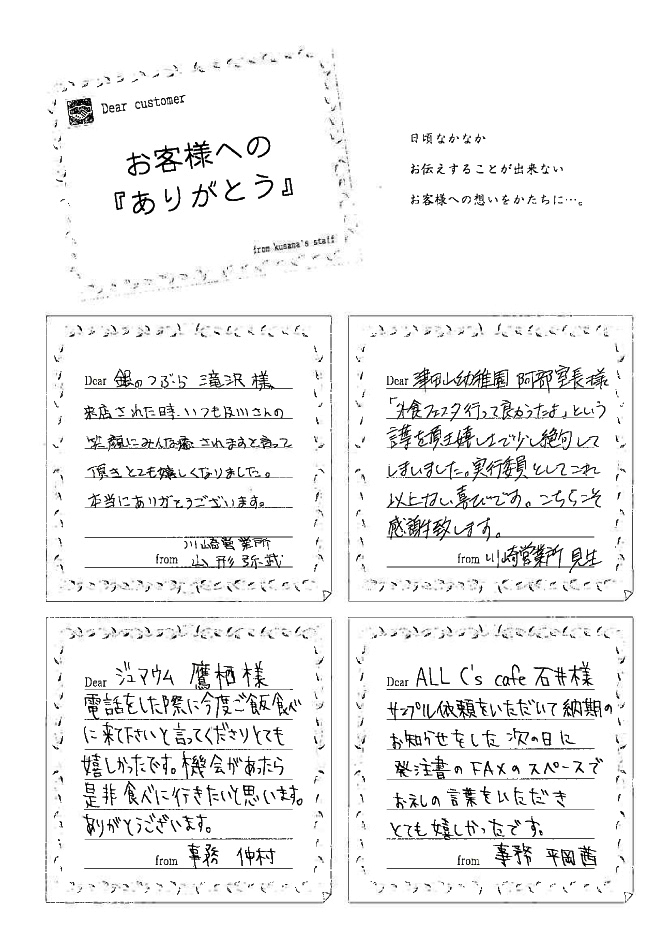 Dear customer
お客様への
『ありがとう』
from kusana's staff
日頃なかなか
お伝えすることが出来ない
お客様への想いをかたちに…。
Dear 銀のつぶら 滝沢 様
来店された時、いつも及川さんの
笑顔にみんな癒されますと言って
頂きとても嬉しくなりました。
本当にありがとうございます。
川崎営業所
from 山形弥哉
Dear 華山幼稚園 阿部室長様
「外食フェスタ行って良かったよ」という
言葉を頂き嬉し上で少し絶句して
しまいました。実行委員としてこれ
以上ない喜びです。こちらこそ
感謝致します。
from 川崎営業所 見生
Dear ジュアウム 鷹栖 様
電話をした際に今度ご飯食べ
に来て下さいと言ってくださりとても
嬉しかったです。機会があったら
是非食べに行きたいと思います。
ありがとうございます。
from 事務 仲村
Dear ALL C's cafe 石井様
サンプル依頼をいただいて納期の
お知らせをした次の日に
発注書のFAXのスペースで
お礼の言葉をいただき
とても嬉しかったです。
from 事務 平岡茜